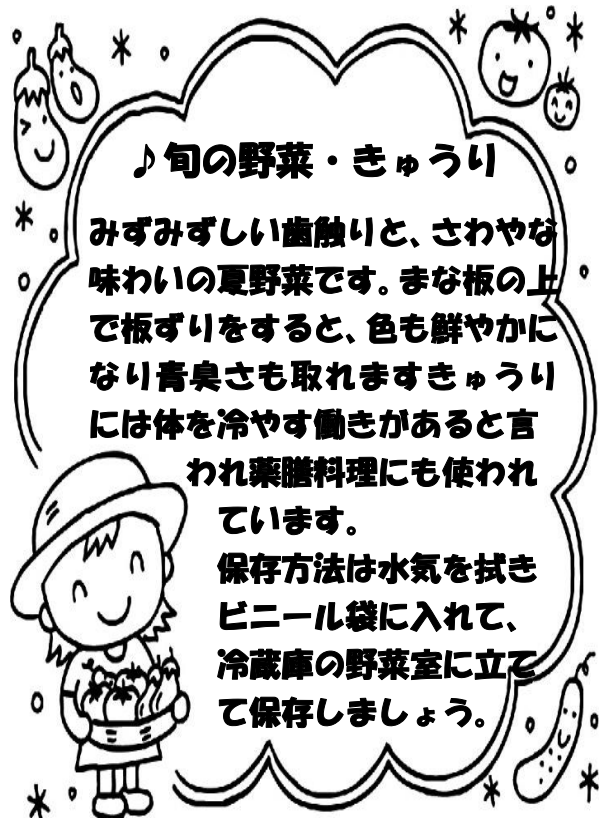 ♪旬の野菜・きゅうり
みずみずしい歯触りと、さわやな
味わいの夏野菜です。まな板の上
で板ずりをすると、色も鮮やかに
なり青臭さも取れますきゅうり
には体を冷やす働きがあると言
われ薬膳料理にも使われ
ています。
保存方法は水気を拭き
ビニール袋に入れて、
冷蔵庫の野菜室に立て
て保存しましょう。